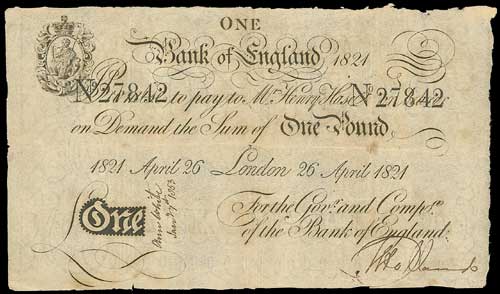 ONE
Bank of England 1821
No 27842 No 27842
I Promise to pay to Mr. Henry Hase or bearer
on Demand the Sum of One Pound
1821 April 26 London 26 April 1821
For the Govr. and Compa.
of the Bank of England.
One